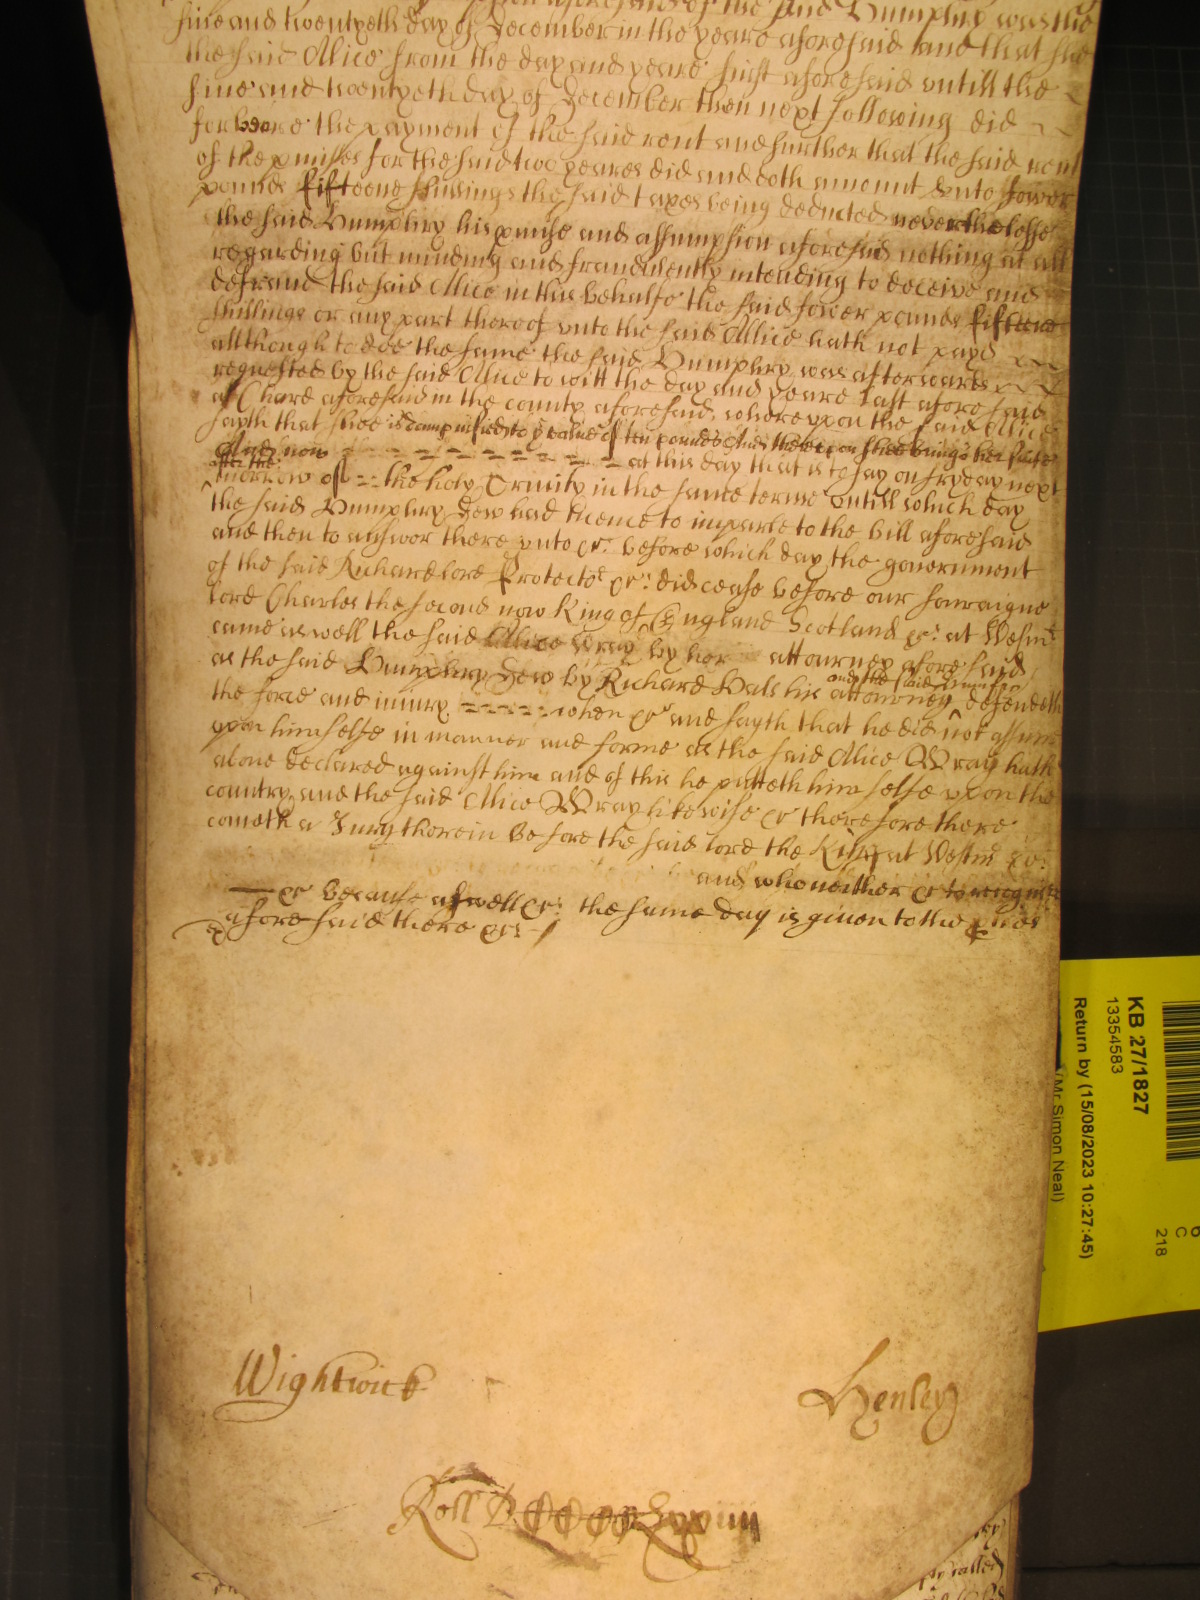 of the said Humphry was the
five and twentyeth day of December in the yeare aforesaid and that shee
the said Alice from the day and yeare first aforesaid untill the
five and twentyeth day of December then next following did
forbeare the payment of the said rent and further that the said rent
of the pmisses for the said two yeares did and doth amount unto fower
pounds fifteene shillings the said taxes being deducted neverthelesse
the said Humphry his pmise and assumpsion aforesaid nothing at all
regarding but minding and fraudulently intending to deceive and
defraud the said Alice in this behalfe the said fower pounds fifteene
shillings or any part thereof unto the said Alice hath not payd
although to doe the same the said Humphry was afterwards
requested by the said Alice to witt the day and yeare last aforesaid
at Chard aforesaid in the county aforesaid, whereupon the said Alice
sayth that shee is dampnified to ye value of ten pounds And thereupon shee brings her suite
And now at this day that is to say on fryday next
after the
morrow of the holy Trinity in the same terme untill which day
the said Humphry Dew had licence to imparle to the bill aforesaid
and then to answer there unto &c: before which day the government
of the said Richard lord Protector &c: did cease before our soveraigne
lord Charles the second now King of England Scotland &c: at Westmr
came aswell the said Alice Wray by her attourney aforesaid
as the said Humphry Dew by Richard Hals his attourney
and the said Humfry
defendeth
the force and iniury when &c and sayth that he did not assume
upon himselfe in manner and forme as the said Alice Wray hath
above declared against him and of this he putteth him selfe upon the
country, and the said Alice Wray likewise &c therefore there
cometh a Jury therein before the said lord the King at Westm &c:
and who neither &c to recognize
&c because aswell &c: the same day is given to the pties
aforesaid there &c:
Wightwick
Henley
Roll
KB 27/1827
13354583
Return by (15/08/2023 10:27:45)
(Mr Simon Neal)
6
C
218